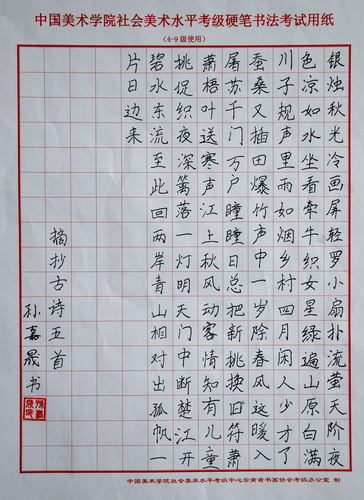 中国美术学院社会美术水平考级硬笔书法考试用纸
(4-9级使用)
银烛秋光冷画屏轻罗小扇扑流萤天阶夜
色凉如水坐看牵牛织女星绿遍山原白满
川子规声里雨如烟乡村四月闲人少才了
蚕桑又插田爆竹声中一岁除春风送暖入
屠苏千门万户瞳瞳日总把新桃换旧符萧
萧梧叶送寒声江上秋风动客情知有儿童
挑促织夜深篱落一灯明天门中断楚江开
碧水东流至此回两岸青山相对出孤帆一
片日边来
摘抄古诗五首
孙嘉晟书
中国美术学院社会美术水平考级中心云南省书画协会考级办公室 制